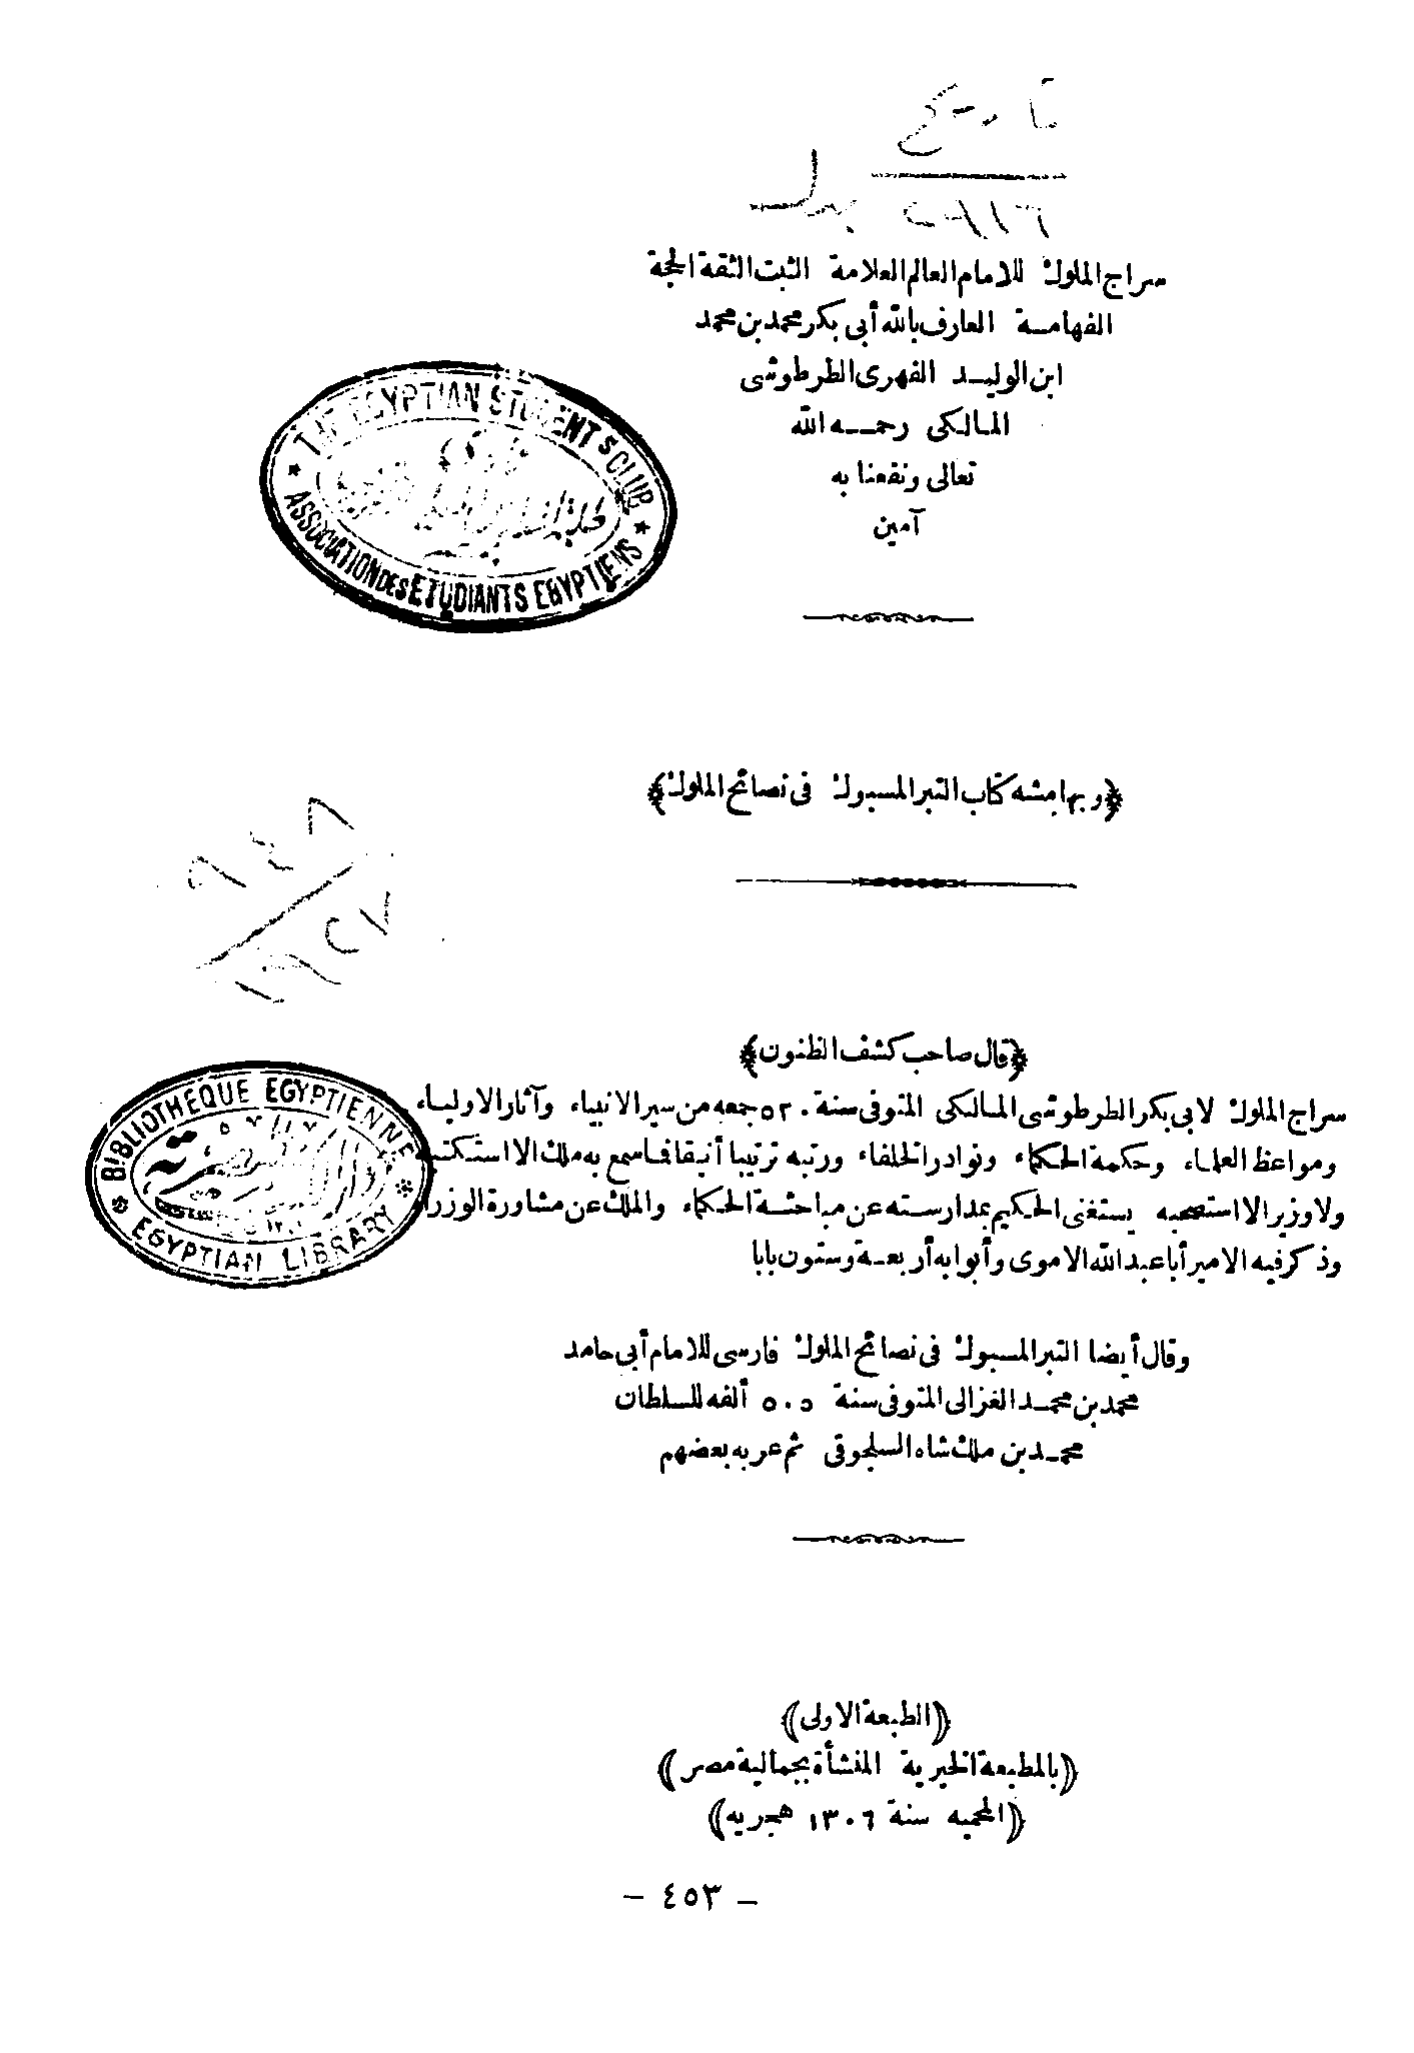 تاريخ
سراج الملوك للامام العالم العلامة الثبت الثقة الحجة
الفهامة العارف بالله أبى بكر محمد بن محمد
ابن الوليد الفهرى الطرطوشى
المالكى رحمه الله
تعالى ونفعنا به
آمين
THE EGYPTIAN STUDENTS CLUB
ASSOCIATION DES ETUDIANTS EGYPTIENS
﴿وبهامشه كتاب التبر المسبوك فى نصائح الملوك﴾
﴿قال صاحب كشف الظنون﴾
سراج الملوك لابى بكر الطرطوشى المالكى المتوفى سنة ٥٢٠ جمعه من سير الانبياء وآثار الاولياء
ومواعظ العلماء وحكمة الحكماء ونوادر الخلفاء ورتبه ترتيبا أنيقا فما سمع به ملك الا استكتبه
ولا وزير الا استصحبه يستغنى الحكيم بمدارسته عن مباحثة الحكماء والملك عن مشاورة الوزراء
وذكر فيه الامير أبا عبد الله الاموى وأبوابه أربعة وستون بابا
BIBLIOTHEQUE EGYPTIENNE
EGYPTIAN LIBRARY
وقال أيضا التبر المسبوك فى نصائح الملوك فارسى للامام أبى حامد
محمد بن محمد الغزالى المتوفى سنة ٥٠٥ ألفه للسلطان
محمد بن ملك شاه السلجوقى ثم عربه بعضهم
﴿الطبعة الاولى﴾
﴿بالمطبعة الخيرية المنشأة بجمالية مصر﴾
﴿المحميه سنة ١٣٠٦ هجريه﴾
- ٤٥٣ -